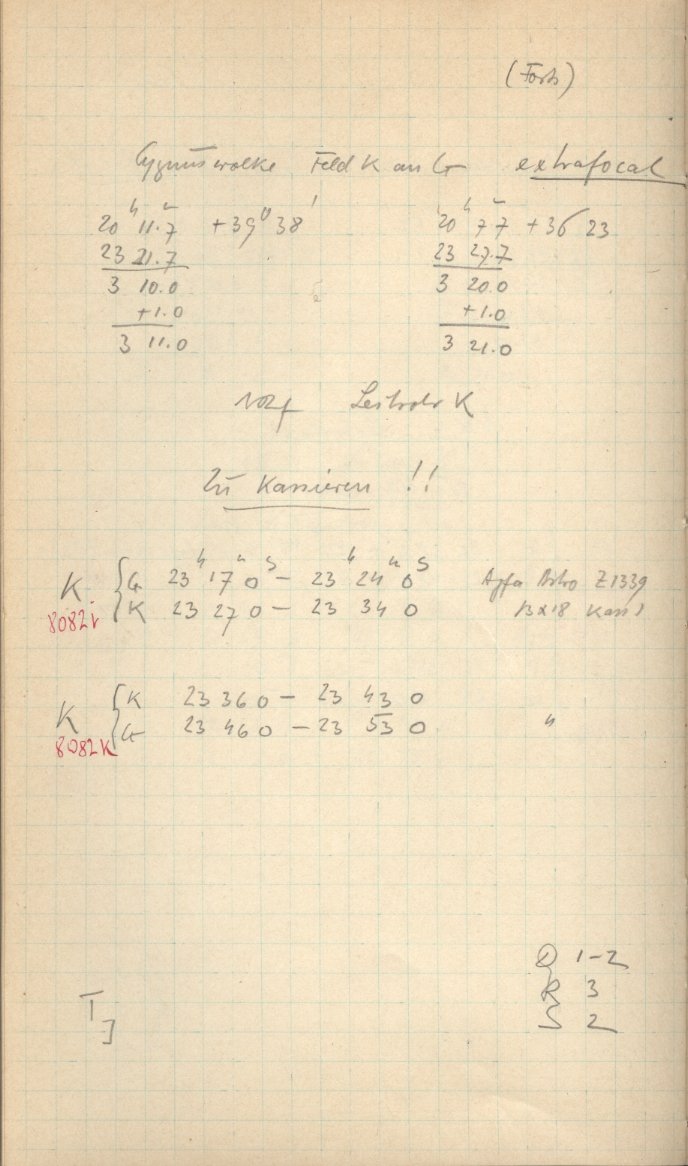 (Forts)
Cygnuswolke Feld K an G extrafocal
20ʰ 11.ᵐ7 +39° 38' 20ʰ 7ᵐ7 +36 23
23 21.7 23 27.7
3 10.0 3 20.0
+1.0 +1.0
3 11.0 3 21.0
Leitrohr K
Zu kassieren !!
K { G 23ʰ 17ᵐ 0ˢ – 23ʰ 24ᵐ 0ˢ Agfa Astro Z1339
8082i { K 23 27 0 – 23 34 0 13x18 Kass
K { K 23 36 0 – 23 43 0
8082k { G 23 46 0 – 23 53 0 "
Q 1-2
R 3
S 2